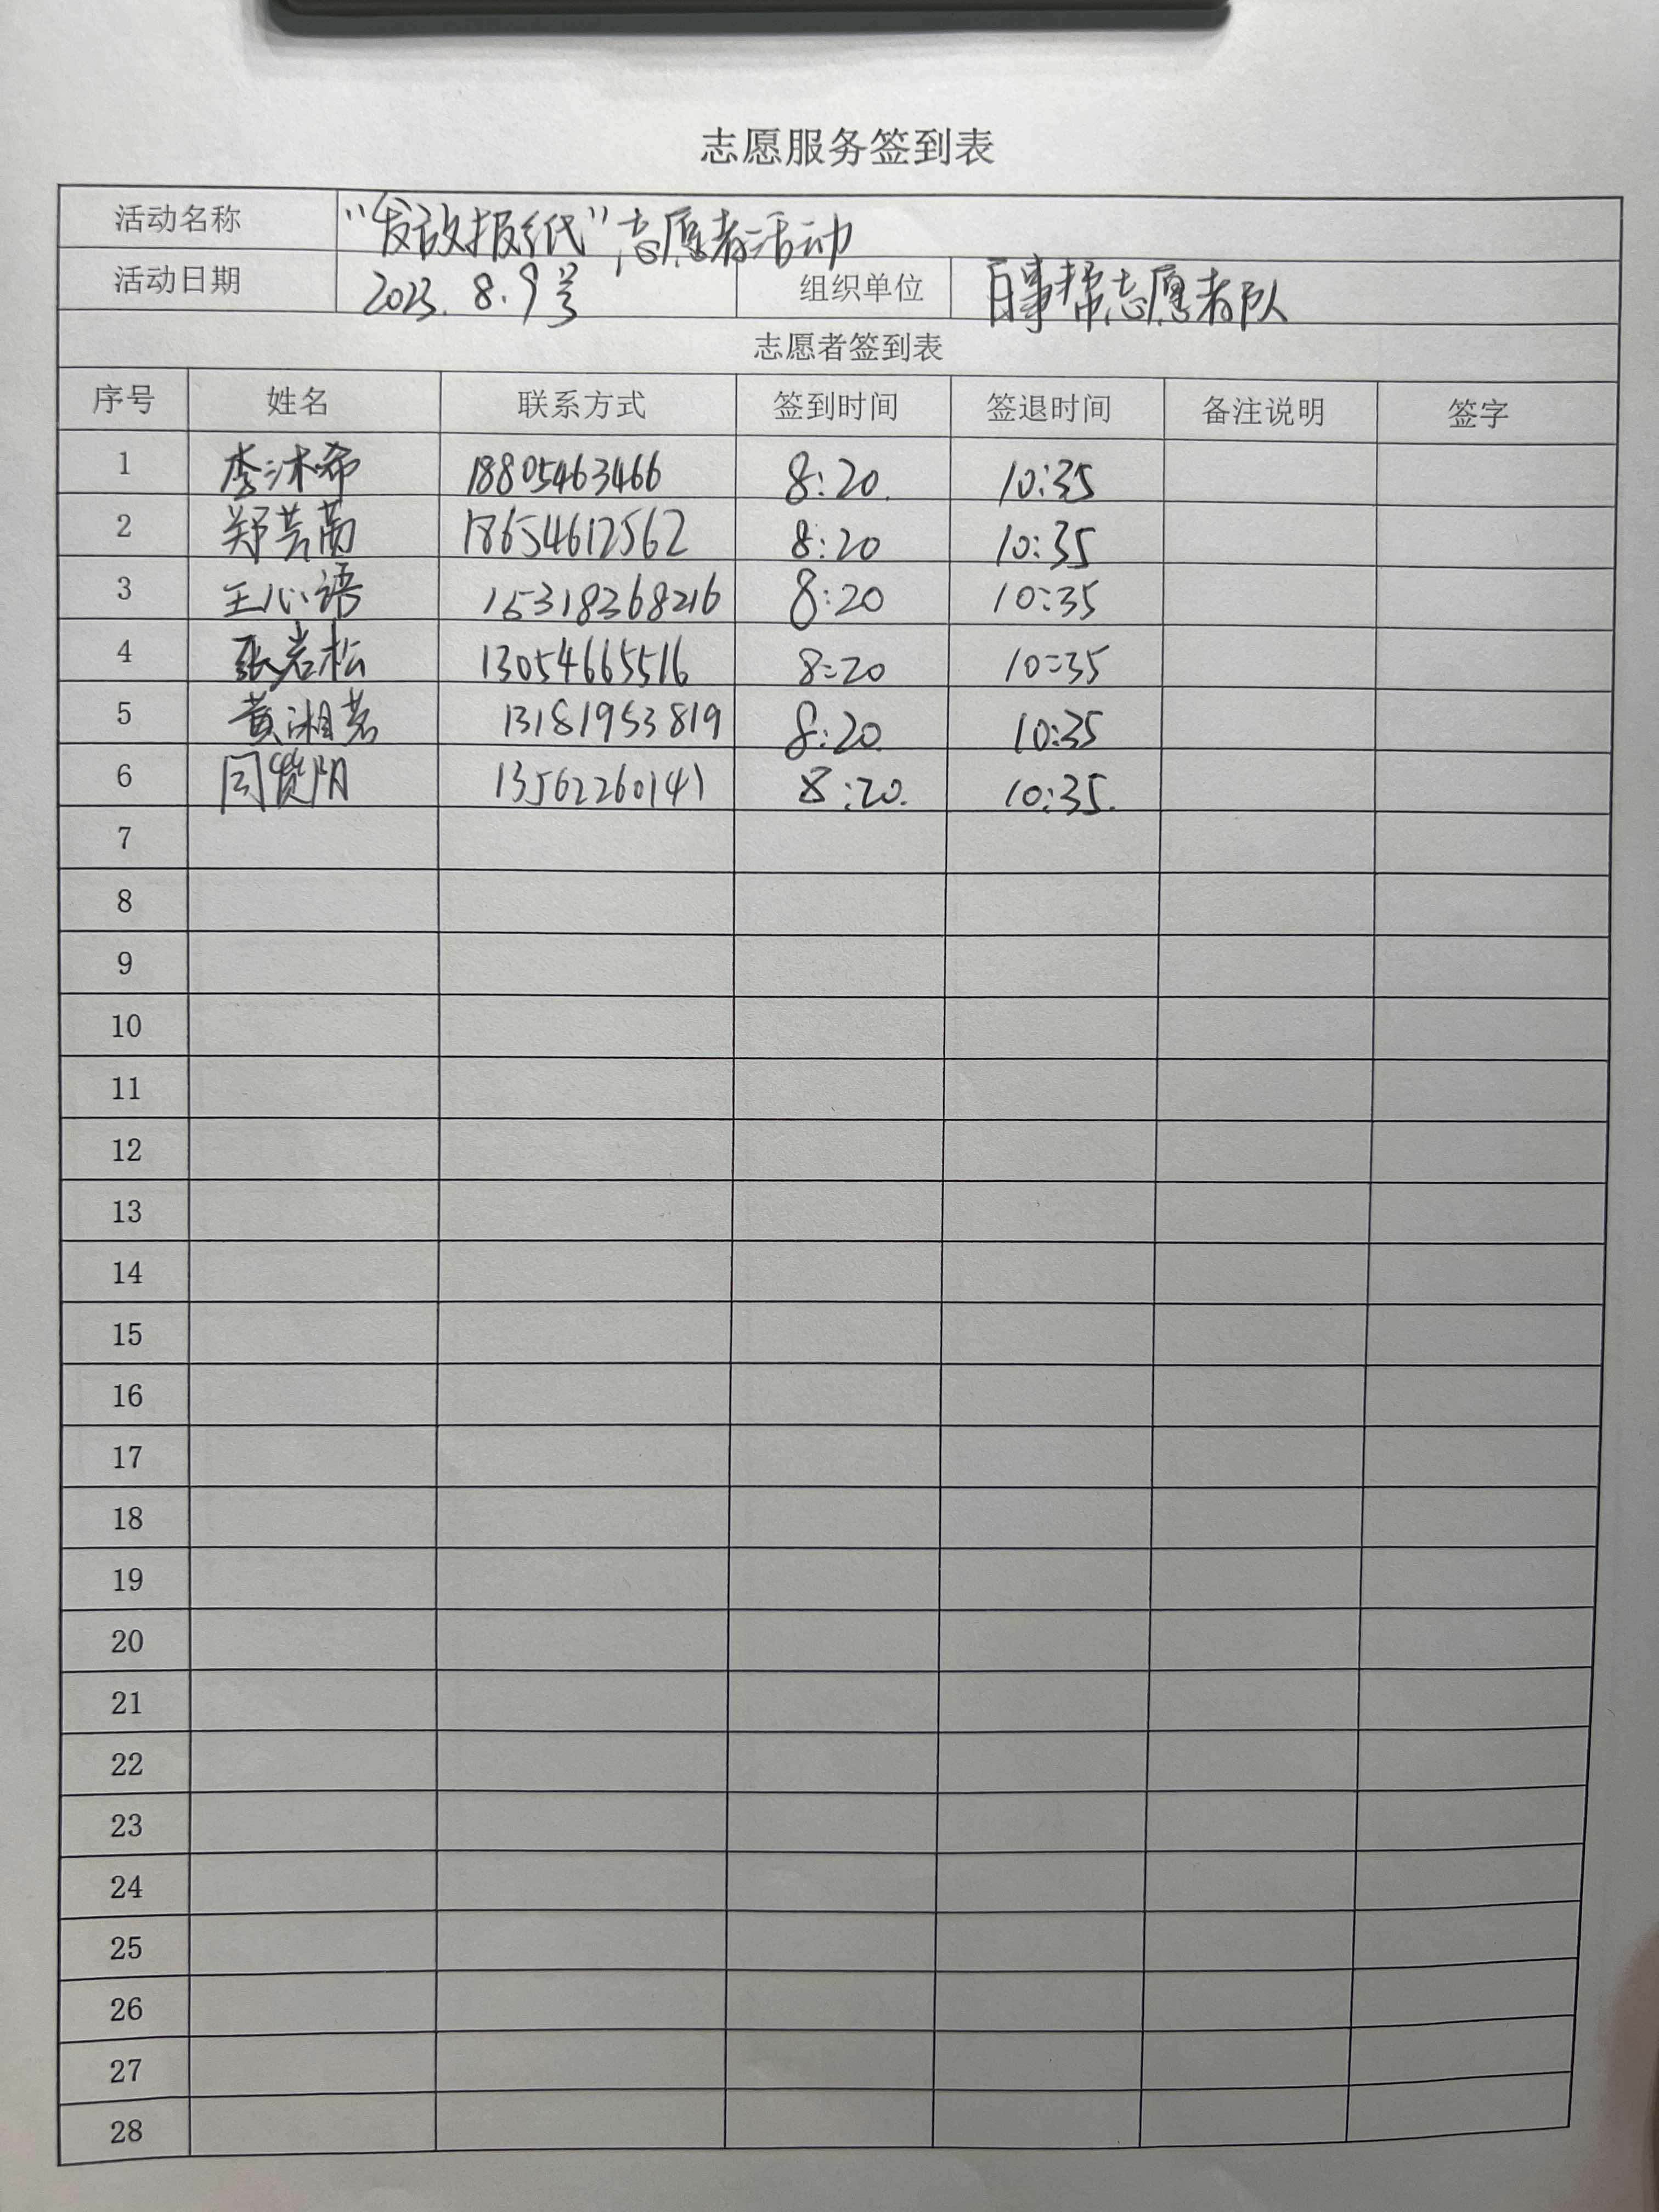 志愿服务签到表
活动名称 “发放报纸”志愿者活动
活动日期 2023.8.9号 组织单位 百事帮志愿者队
志愿者签到表
序号 姓名 联系方式 签到时间 签退时间 备注说明 签字
1 李沐希 18805463466 8:20 10:35
2 郑芸菡 18654612562 8:20 10:35
3 王心语 15318368216 8:20 10:35
4 张岩松 13054665516 8:20 10:35
5 黄湘茗 13181953819 8:20 10:35
6 13562260141 8:20 10:35
7
8
9
10
11
12
13
14
15
16
17
18
19
20
21
22
23
24
25
26
27
28